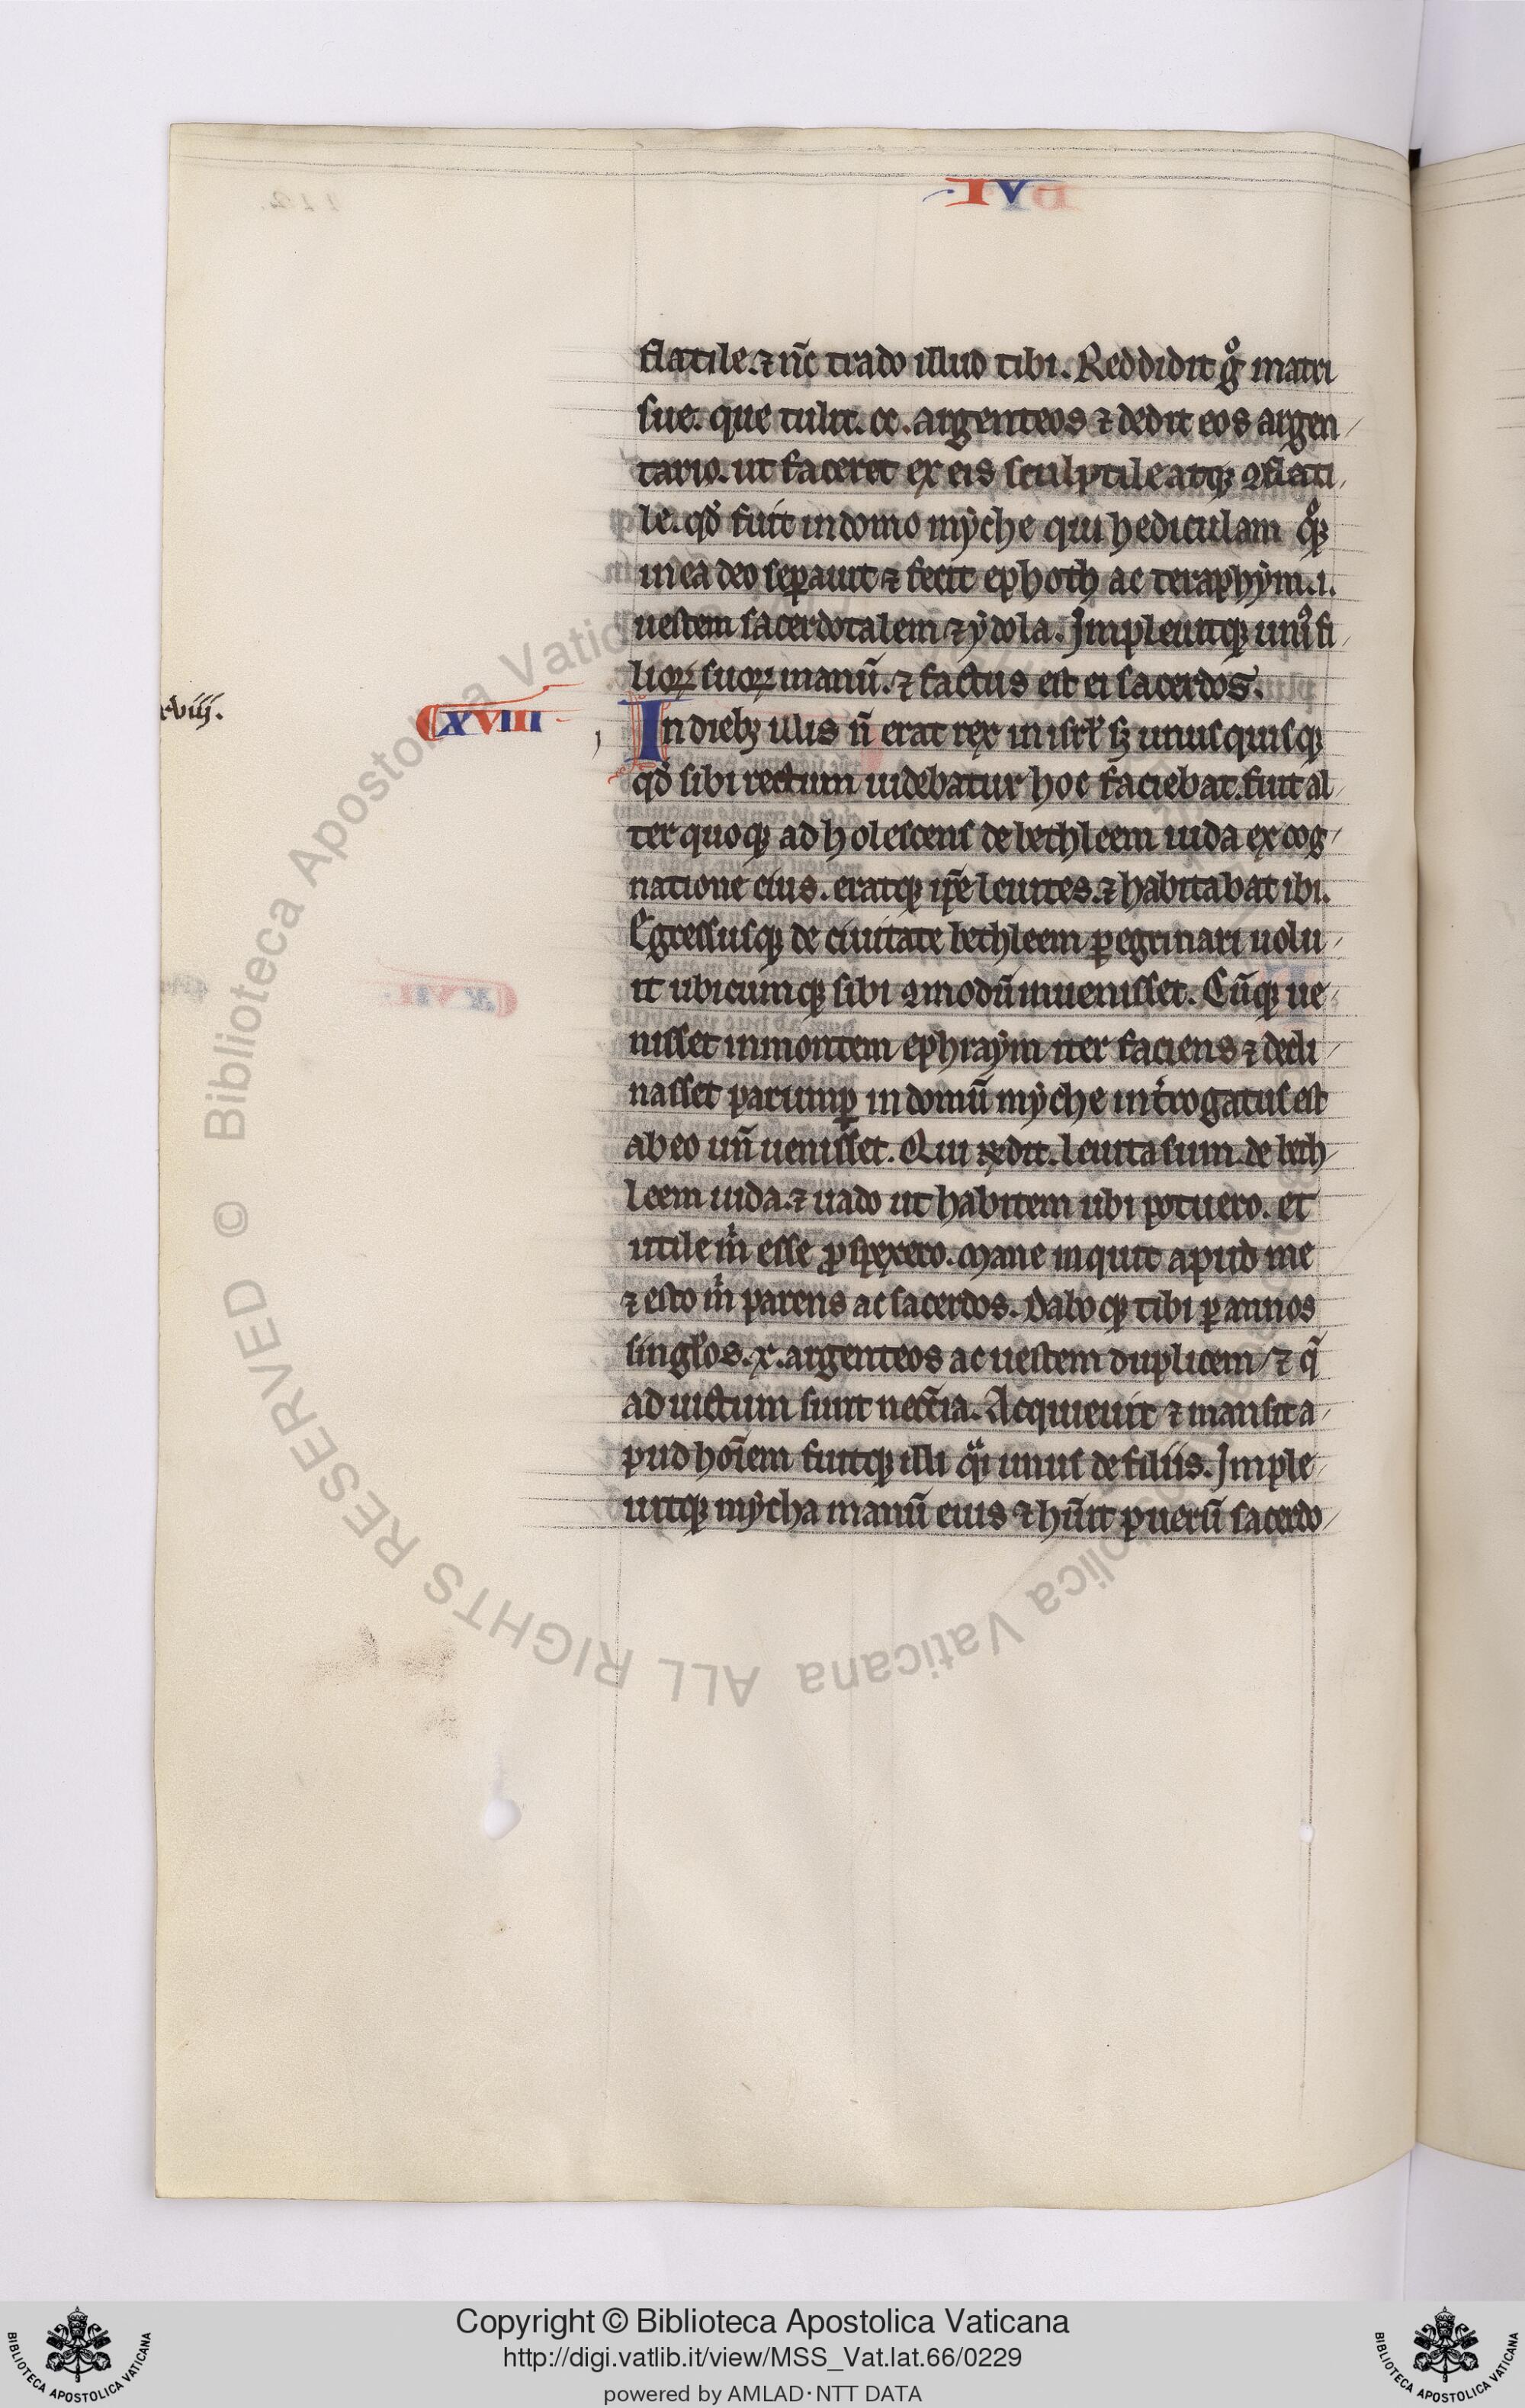 .VI.
flatile. ⁊ nc̄ trado illud tibi. Reddidit gͦ matri
sue. que tulit. cc. argenteos ⁊ dedit eos argen
tario. ut faceret ex eis sculptile atqꝫ ꝯflati
le. qd̓ fuit in domo mẏche qui hediculam qͦqꝫ
in ea deo seꝑauit ⁊ fecit ephoth ac teraphẏm .i.
uestem sacerdotalem ⁊ ẏdola. Impleuitqꝫ uniꝰ fi
lioꝝ suoꝝ manū. ⁊ factus est ei sacerdos.
xviij.
XVIII
In diebꝫ illis n̄ erat rex in isrl̓ sꝫ unusquisqꝫ
qd̓ sibi rectum uidebatur hoc faciebat. fuit al
ter quoqꝫ adholescens de bethleem iuda ex cog
natione eius. eratqꝫ ip̄e leuites. ⁊ habitabat ibi.
Egressusqꝫ de ciuitate bethleem ꝑegrinari uolu
it ubicumqꝫ sibi ꝯmodū inuenisset. Cūqꝫ ue
nisset in montem ephraẏm iter faciens ⁊ decli
nasset parumꝑ in domū mẏche int̓rogatus est
ab eo un̄ uenisset. Qui r̄x̄dit. leuita sum. de beth
leem iuda. ⁊ uado ut habitem ubi potuero. et
utile m̓ esse ꝓspexero. Mane inquit apud me
⁊ esto m̓ parens ac sacerdos. Daboqꝫ tibi ꝑ annos
singl̓os. x. argenteos ac uestem duplicem / ⁊ q̄
ad uictum sunt necc̄ia. Acquieuit ⁊ mansit a
pud hoīem fuitqꝫ illi qͣi unus de filiis. Imple
uitqꝫ mẏcha manū eius ⁊ hūit puerū sacerdo
© Biblioteca Apostolica Vaticana ALL RIGHTS RESERVED
Copyright © Biblioteca Apostolica Vaticana
http://digi.vatlib.it/view/MSS_Vat.lat.66/0229
powered by AMLAD·NTT DATA
BIBLIOTECA APOSTOLICA VATICANA
BIBLIOTECA APOSTOLICA VATICANA